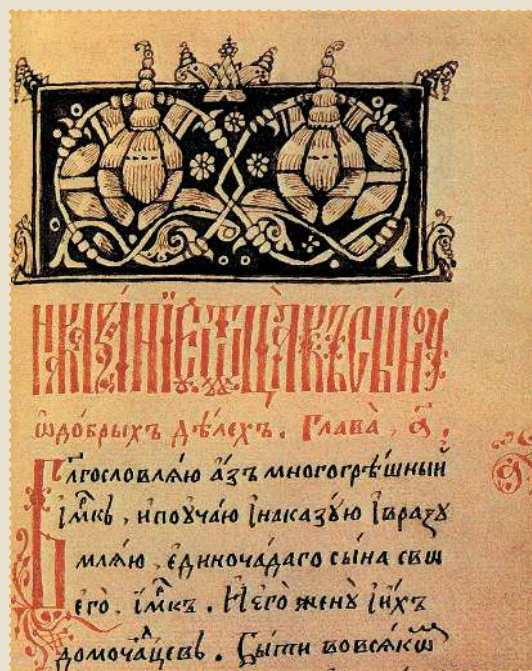 НАКАЗА́НІЕ Ѿ ѾЦА̀ КСЫ́НОУ
ѡдо́брыхъ дѣ́лехъ. Глава̀, а҃.
Блгословлѧ́ю а́зъ многогрѣ́шный
і҆м҃кь, ипоуча́ю і҆наказꙋ́ю і҆вразꙋ
млѧ́ю, единоча́даго сы́на свѡ
его̀. і҆м҃къ. Иего̀ женꙋ̀ і҆и́хъ
домоча́дцевь. Бы́ти вовсѧ́кѡм